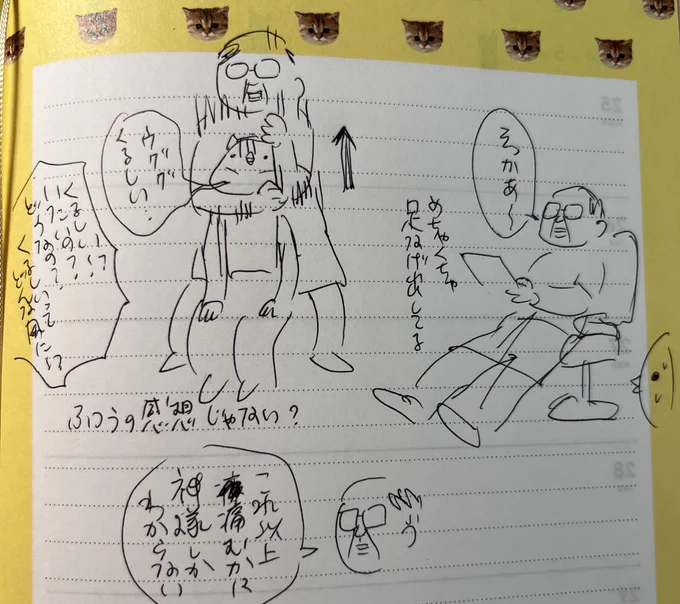 ウググ
くるしい.
くるしい!?
いたいの?
どうなの?
くるしいって
どんな風に!?
そっかあ〜
めちゃくちゃ
足なげ出してる
ふつうの感想じゃない?
これ以上
痛むかは
神様しか
わからない
25
28